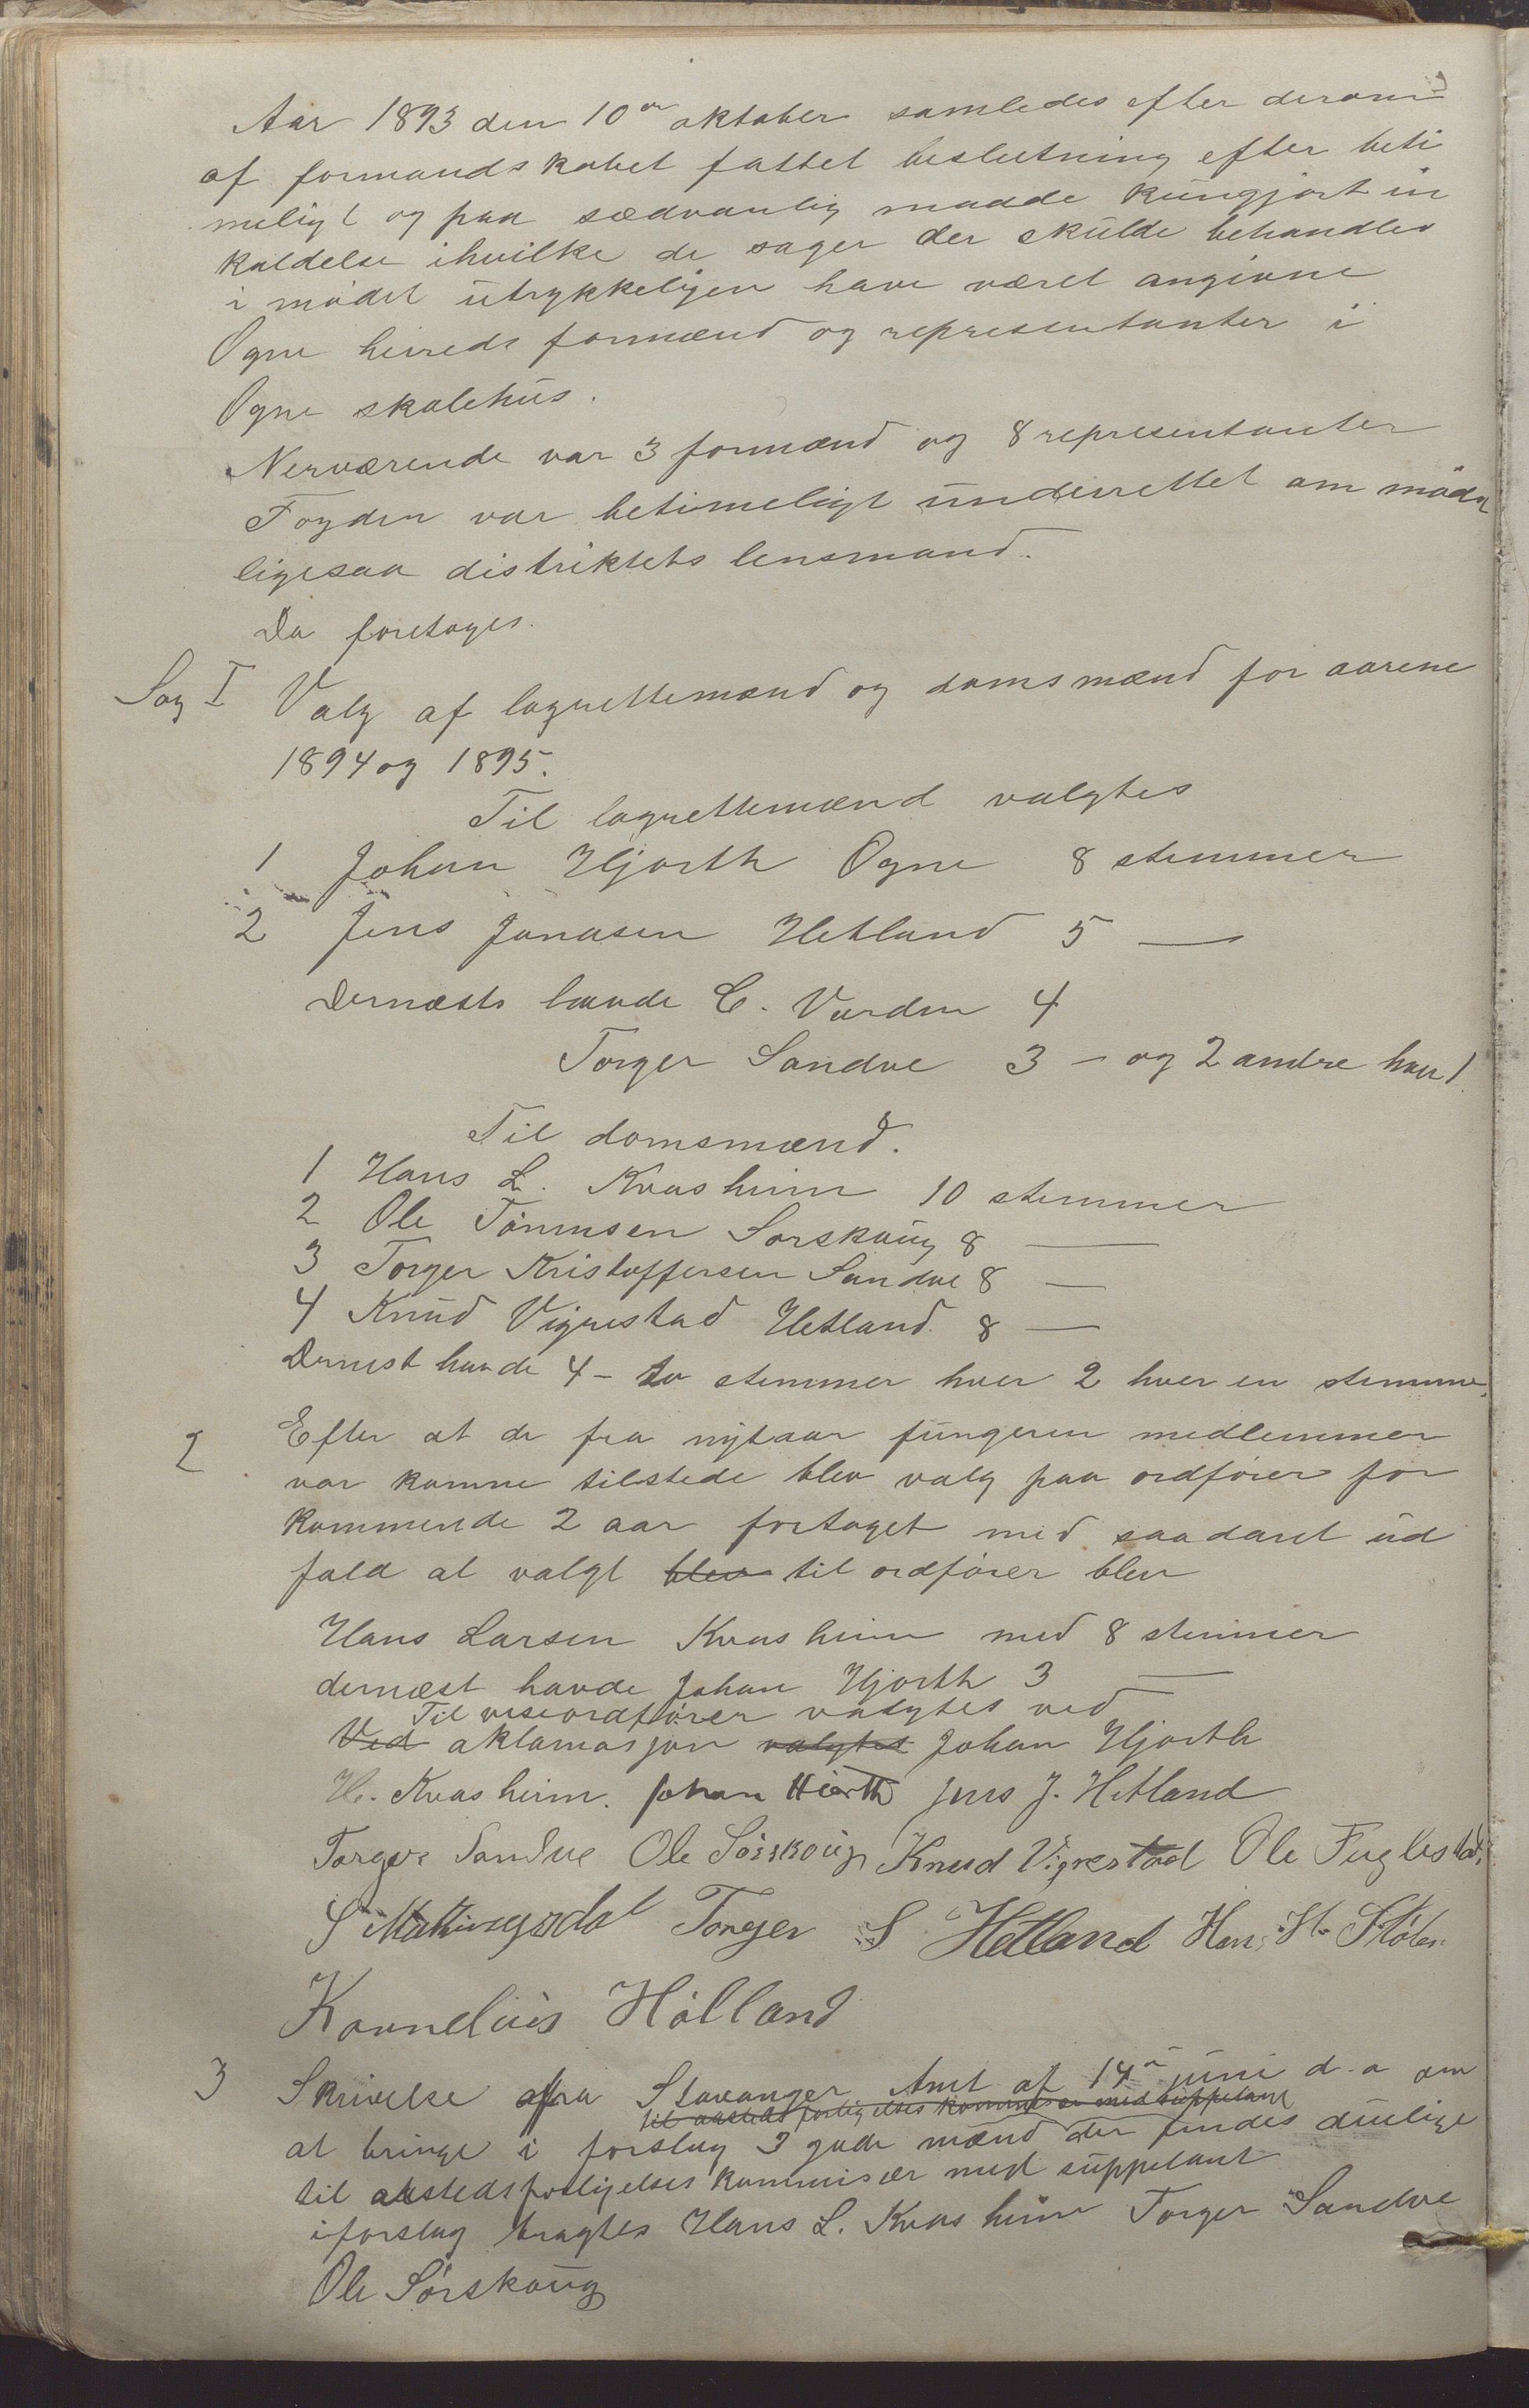 Aar 1893 den 10de oktober samledes efter derom
af formandskabet fattet beslutning efter beti
meligt og paa sædvanlig maade kungjort in
kaldelse ihvilke de sager der skulde behandles
i mødet utrykkeligen have været angivne
Ogne herreds formænd og representanter i
Ogne skolehus.
Nerværende var 3 formænd og 8 representanter
Fogden var betimeligt underrettet om mødet
ligesaa distriktets lensmand.
Da foretoges.
Sag I Valg af lagrettemænd og domsmænd for aarene
1894 og 1895.
Til lagrettemænd valgtes
1 Johan Hjorth Ogne 8 stemmer
2 Jens Jonasen Hetland 5 —
Dernæsts havde C. Varden 4
Torger Sandve 3 — og 2 andre hver 1
Til domsmænd.
1 Hans L. Kvasheim 10 stemmer
2 Ole Tønnesen Sørskoug 8 —
3 Torger Kristoffersen Sandve 8 —
4 Knud Vigrestad Hetland. 8 —
Dernest havde 4 - to stemmer hver 2 hver en stemme.
2 Efter at de fra nytaar fungeren medlemmer
var komne tilstede blev valg paa ordfører for
kommende 2 aar foretaget med saadant ud
fald at valgt blev til ordfører blev
Hans Larsen Kvasheim med 8 stemmer
dernæst havde Johan Hjorth 3 —
Til viseordfører valgtes ved
Ved aklamasjon valgtes Johan Hjorth
H. Kvasheim. Johan Hiorth Jens J. Hetland
Torger Sandve Ole Sørskoug Knud Vigrestad Ole Fuglestad,
S Matingsdal Torger S Hetland Hans H. Stølen
Kornelius Hølland
3 Skrivelse fra Stavanger Amt af 14de juni d. a om
til aasteds forligelses kommisær med suppelant
at bringe i forslag 3 gode mænd der findes duelige
til aastedsforligelses kommisær med suppelant
iforslag bragtes Hans L. Kvasheim Torger Sandve
Ole Sørskoug